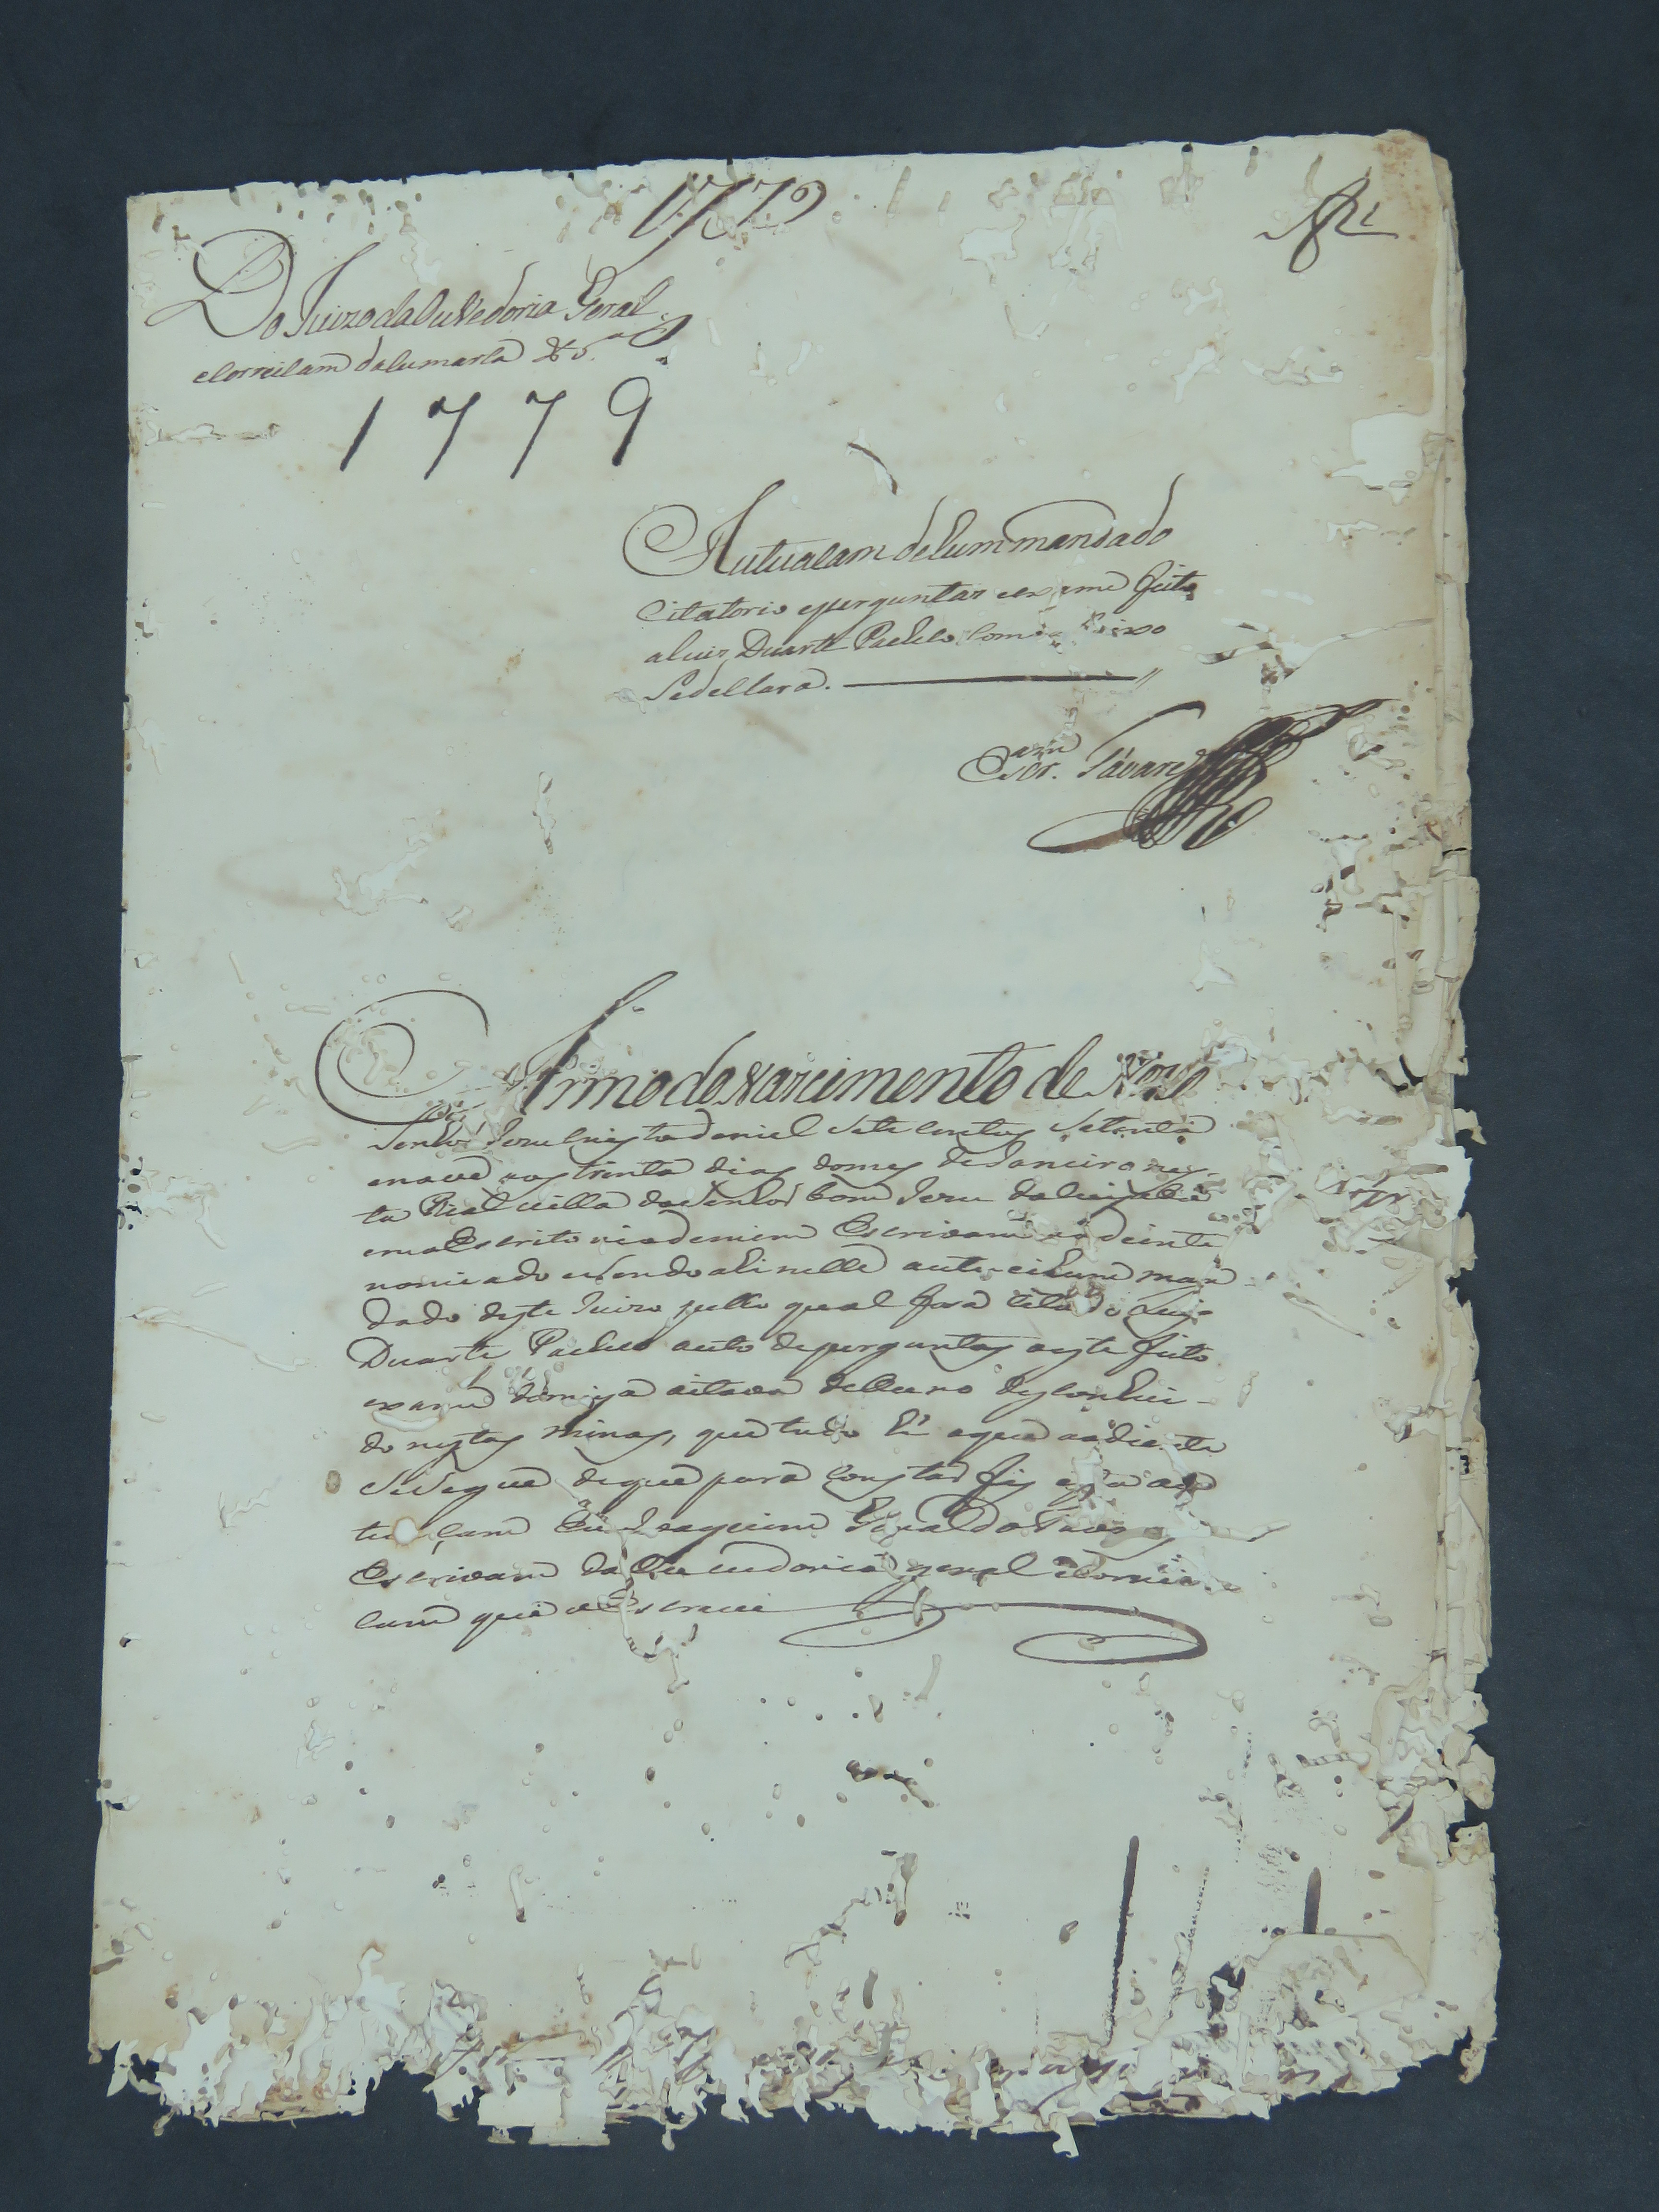 1779
Do Juizo da Ouvedoria Geral
e Correicam da Cumarca &.ª
1779
Autuacam de hum mandado
Citatorio e perguntas e exame feito
a Luis Duarte Pacheco como
se declara.
Escr.am Tavares
Anno do Nascimento de Noso
Senhor Jesu Christo de mil sete centos setenta
e nove aos trinta dias do mes de Janeiro nes-
ta Real Villa do Senhor bom Jesu do Cuyaba
em o Escritorio de mim Escrivam ao deiante
nomiado e sendo ahi nelle autuei hum man
dado deste Juizo pello qual fora citado Luis
Duarte Pacheco auto de perguntas a este feito
exame de meya oitava de Ouro
do nestas minas, que tudo hé o que aodiante
se segue de que para constar fis esta au
tuacam Eu Joaquim Tavares
Escrivam da Ouvedoria geral e Correi
cam que o Escrevi